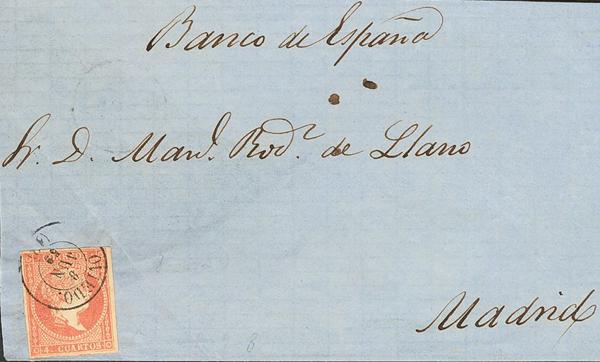 Banco de España
Sr. D. Man.l Rod.z de Llano
OVIEDO
8
JUN
Madrid
4 CUARTOS
8